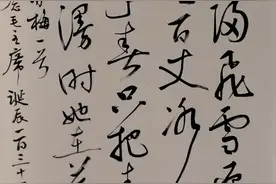 归飞雪迎
百丈冰
春只把春
漫时她在丛
咏梅一首
念毛主席诞辰一百三十